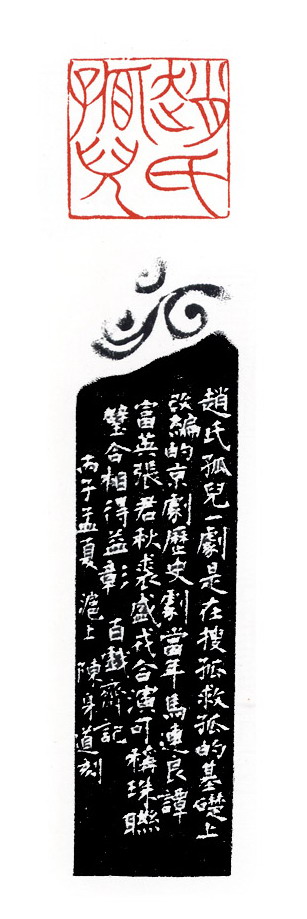 趙氏
孤兒
趙氏孤兒一劇是在搜孤救孤的基礎上
改編的京劇歷史劇當年馬連良譚
富英張君秋裘盛戎合演可稱珠聯
璧合相得益彰 百戲齋記
丙子孟夏 滬上 陳身道刻